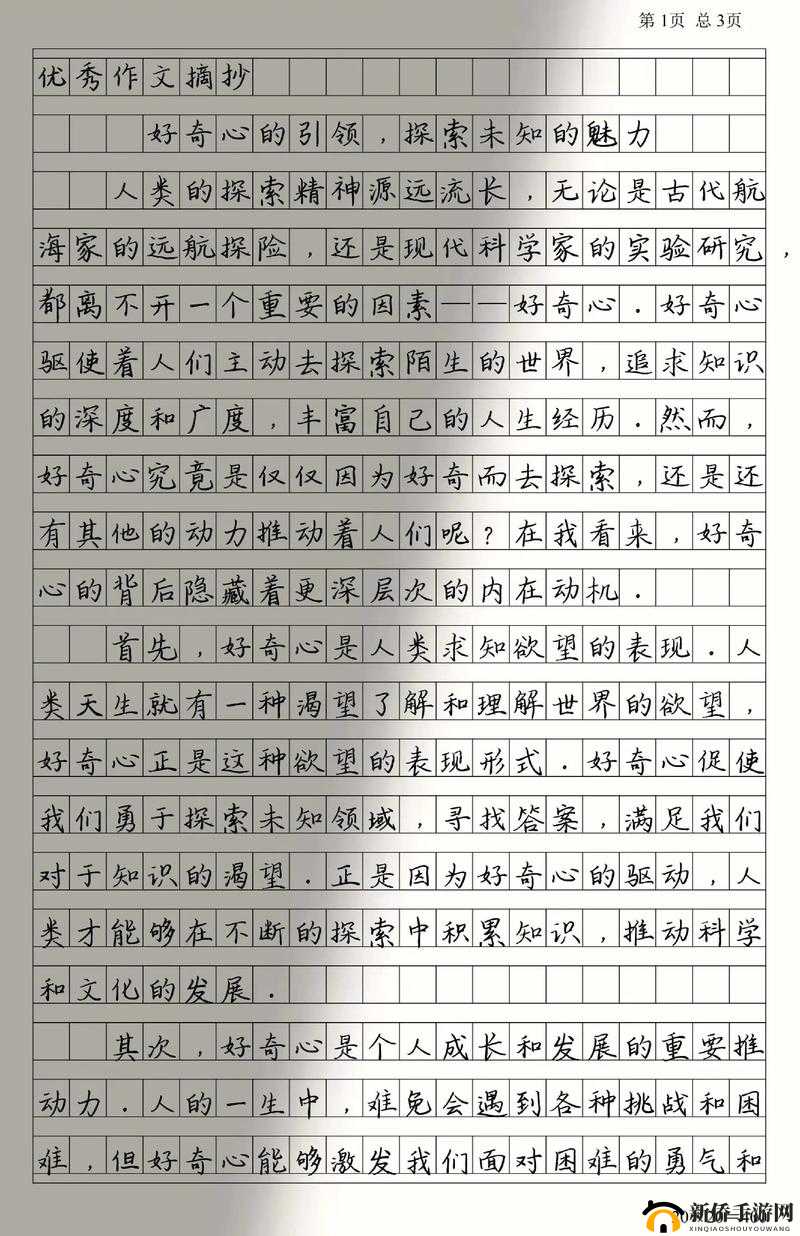 第1页 总3页
优秀作文摘抄
好奇心的引领，探索未知的魅力
人类的探索精神源远流长，无论是古代航
海家的远航探险，还是现代科学家的实验研究，
都离不开一个重要的因素——好奇心．好奇心
驱使着人们主动去探索陌生的世界，追求知识
的深度和广度，丰富自己的人生经历．然而，
好奇心究竟是仅仅因为好奇而去探索，还是还
有其他的动力推动着人们呢？在我看来，好奇
心的背后隐藏着更深层次的内在动机．
首先，好奇心是人类求知欲望的表现．人
类天生就有一种渴望了解和理解世界的欲望，
好奇心正是这种欲望的表现形式．好奇心促使
我们勇于探索未知领域，寻找答案，满足我们
对于知识的渴望．正是因为好奇心的驱动，人
类才能够在不断的探索中积累知识，推动科学
和文化的发展．
其次，好奇心是个人成长和发展的重要推
动力．人的一生中，难免会遇到各种挑战和困
难，但好奇心能够激发我们面对困难的勇气和
新侨手游网
XINQIAOSHOUYOUWANG